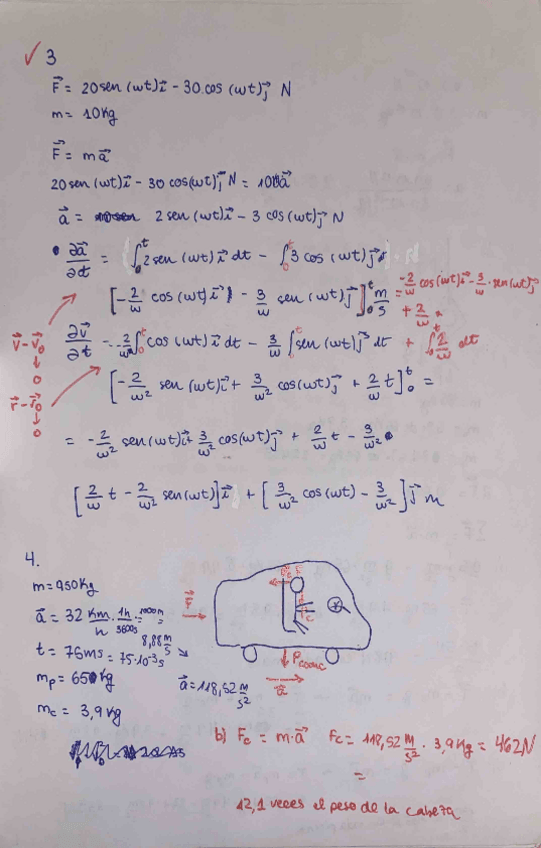 ✓ 3
F⃗ = 20 sen (ωt) i⃗ - 30 cos (ωt) j⃗ N
m = 10 Kg
F⃗ = m a⃗
20 sen (ωt) i⃗ - 30 cos(ωt) j⃗ N = 10 a⃗
a⃗ = 2 sen(ωt) i⃗ - 3 cos(ωt) j⃗ N
• ∂a⃗/∂t = ∫₀ᵗ 2 sen (ωt) i⃗ dt - ∫₀ᵗ 3 cos (ωt) j⃗
[-2/ω cos (ωt) i⃗ - 3/ω sen (ωt) j⃗]₀ᵗ m/s = -2/ω cos(ωt) i⃗ - 3/ω · sen(ωt) j⃗
+ 2/ω
v⃗ - v⃗₀
↓
0
∂v⃗/∂t = -2/ω ∫₀ᵗ cos (ωt) i⃗ dt - 3/ω ∫₀ᵗ sen(ωt) j⃗ dt + ∫₀ᵗ 2/ω dt
r⃗ - r⃗₀
↓
0
[-2/ω² sen (ωt) i⃗ + 3/ω² cos(ωt) j⃗ + 2/ω t]₀ᵗ =
= -2/ω² sen(ωt) i⃗ + 3/ω² cos(ωt) j⃗ + 2/ω t - 3/ω²
[2/ω t - 2/ω² sen(ωt)] i⃗ + [3/ω² cos (ωt) - 3/ω²] j⃗ m
4.
m = 950 Kg
a⃗ = 32 Km/h · 1h/3600s · 1000m =
8,88 m/s
t = 75ms = 75·10⁻³ s
m_p = 65 kg
m_c = 3,9 kg
F⃗
P_coche
a⃗
a⃗ = 118,52 m/s²
b) F_c = m·a⃗ F_c = 118,52 m/s² · 3,9 Kg = 462 N
=
12,1 veces el peso de la cabeza